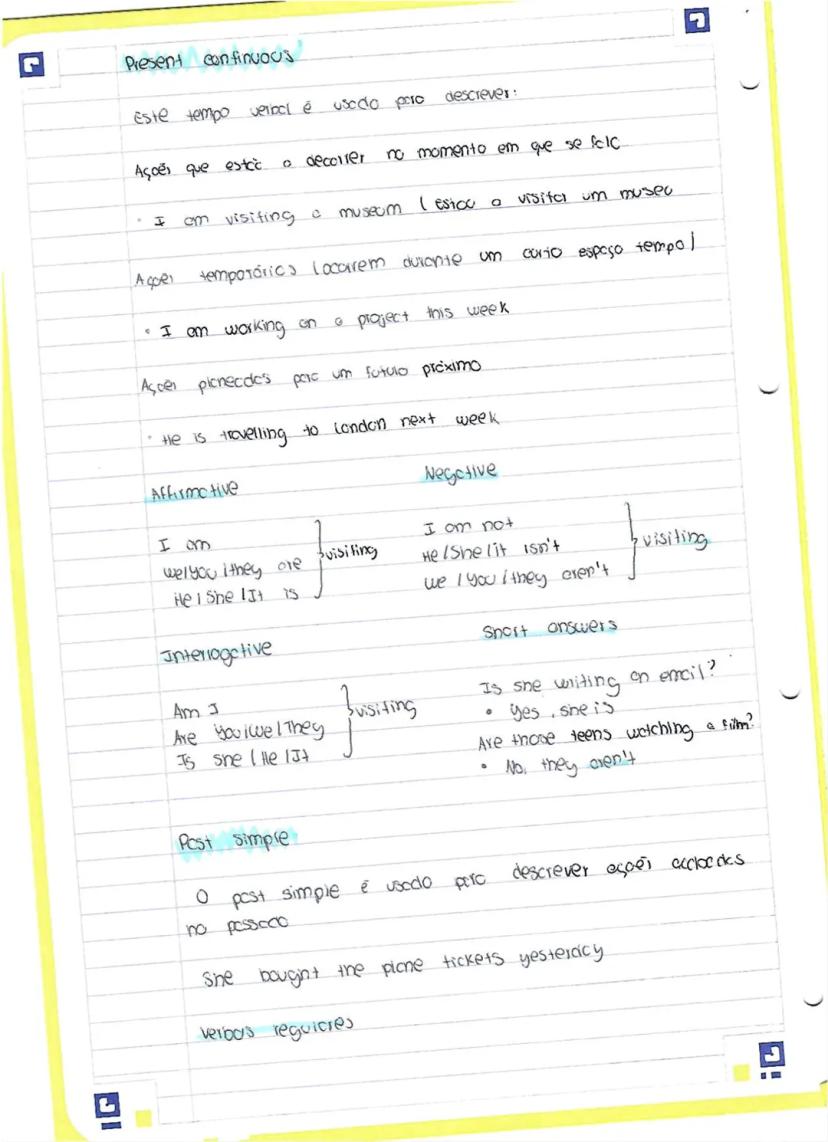 Present continuous
Este tempo verbal é usado para descrever:
Ações que está a decorrer no momento em que se fala
• I am visiting a museum ( estou a visitar um museu
Ações temporárias ( ocorrem durante um curto espaço tempo)
• I am working on a project this week
Ações planeadas para um futuro próximo
• He is travelling to London next week
Affirmative
Negative
I am
we/you/they are
He/She/It is
visiting
I am not
He/She/it isn't
we/you/they aren't
visiting
Interrogative
Short answers
Am I
Are you/we/They
Is she/He/It
visiting
Is she writing an email?
• Yes, she is
Are those teens watching a film?
• No, they aren't
Past simple
O past simple é usado para descrever ações acabadas
no passado
She bought the plane tickets yesterday
verbos regulares